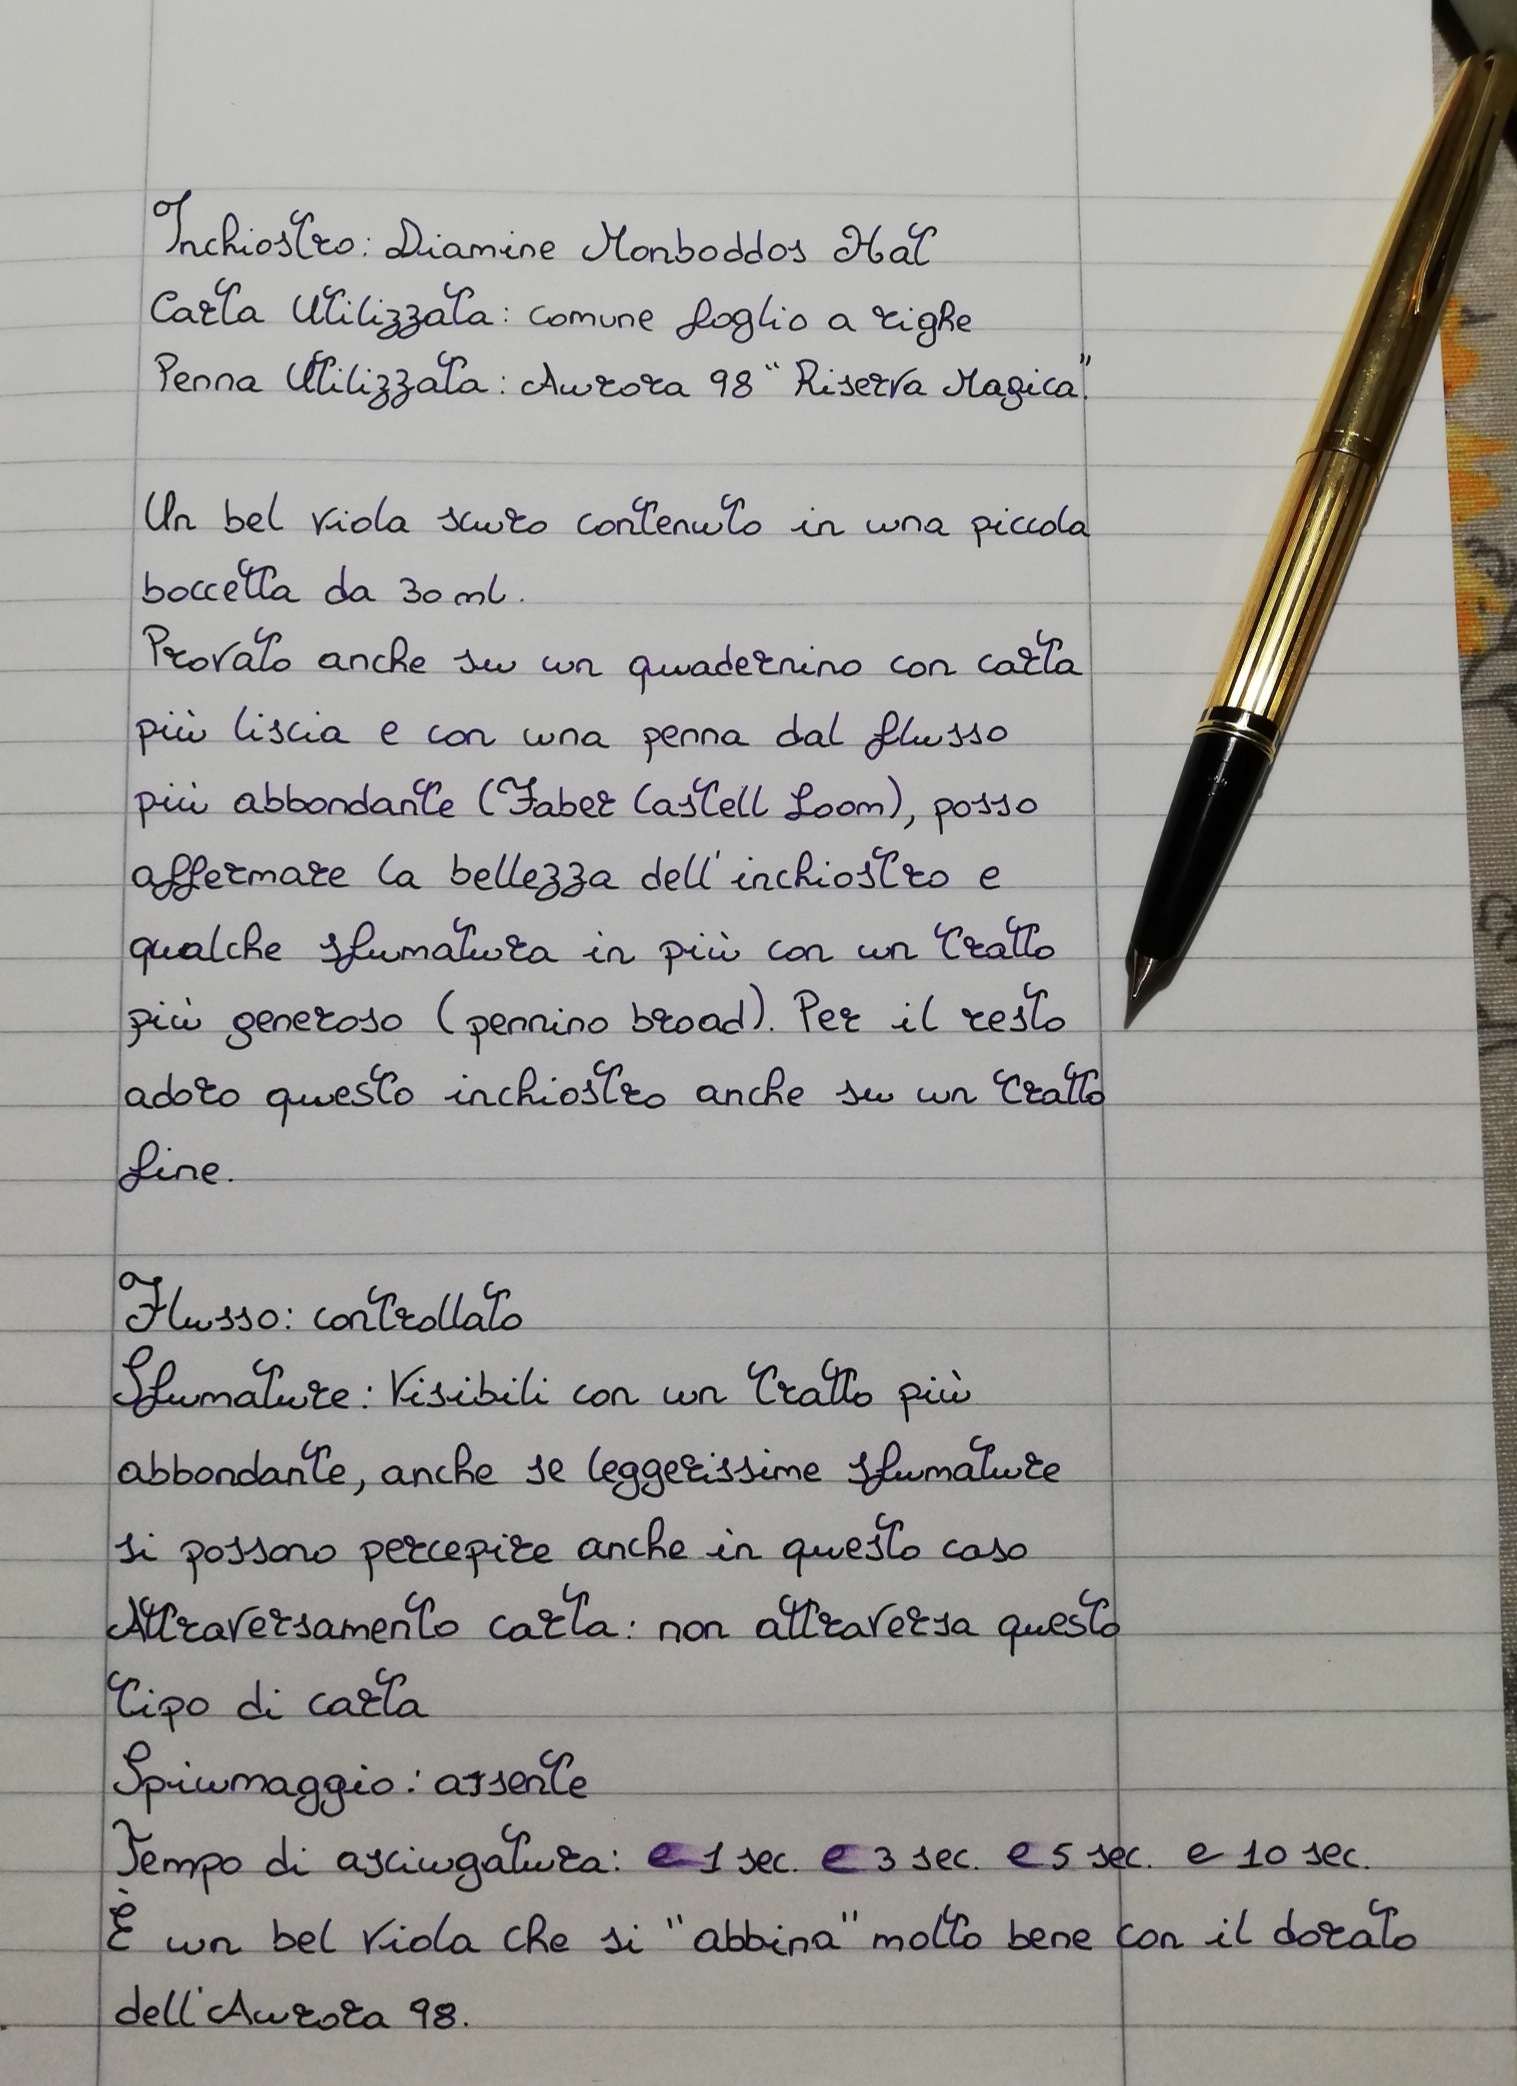 Inchiostro: Diamine Monboddos Hat
Carta Utilizzata: comune foglio a righe
Penna Utilizzata: Aurora 98 "Riserva Magica".
Un bel viola scuro contenuto in una piccola
boccetta da 30 ml.
Provato anche su un quadernino con carta
più liscia e con una penna dal flusso
più abbondante (Faber Castell Loom), posso
affermare la bellezza dell'inchiostro e
qualche sfumatura in più con un tratto
più generoso (pennino broad). Per il resto
adoro questo inchiostro anche su un tratto
fine.
Flusso: controllato
Sfumature: Visibili con un tratto più
abbondante, anche se leggerissime sfumature
si possono percepire anche in questo caso
Attraversamento carta: non attraversa questo
tipo di carta
Spiumaggio: assente
Tempo di asciugatura: e 1 sec. e 3 sec. e 5 sec. e 10 sec.
È un bel viola che si "abbina" molto bene con il dorato
dell'Aurora 98.